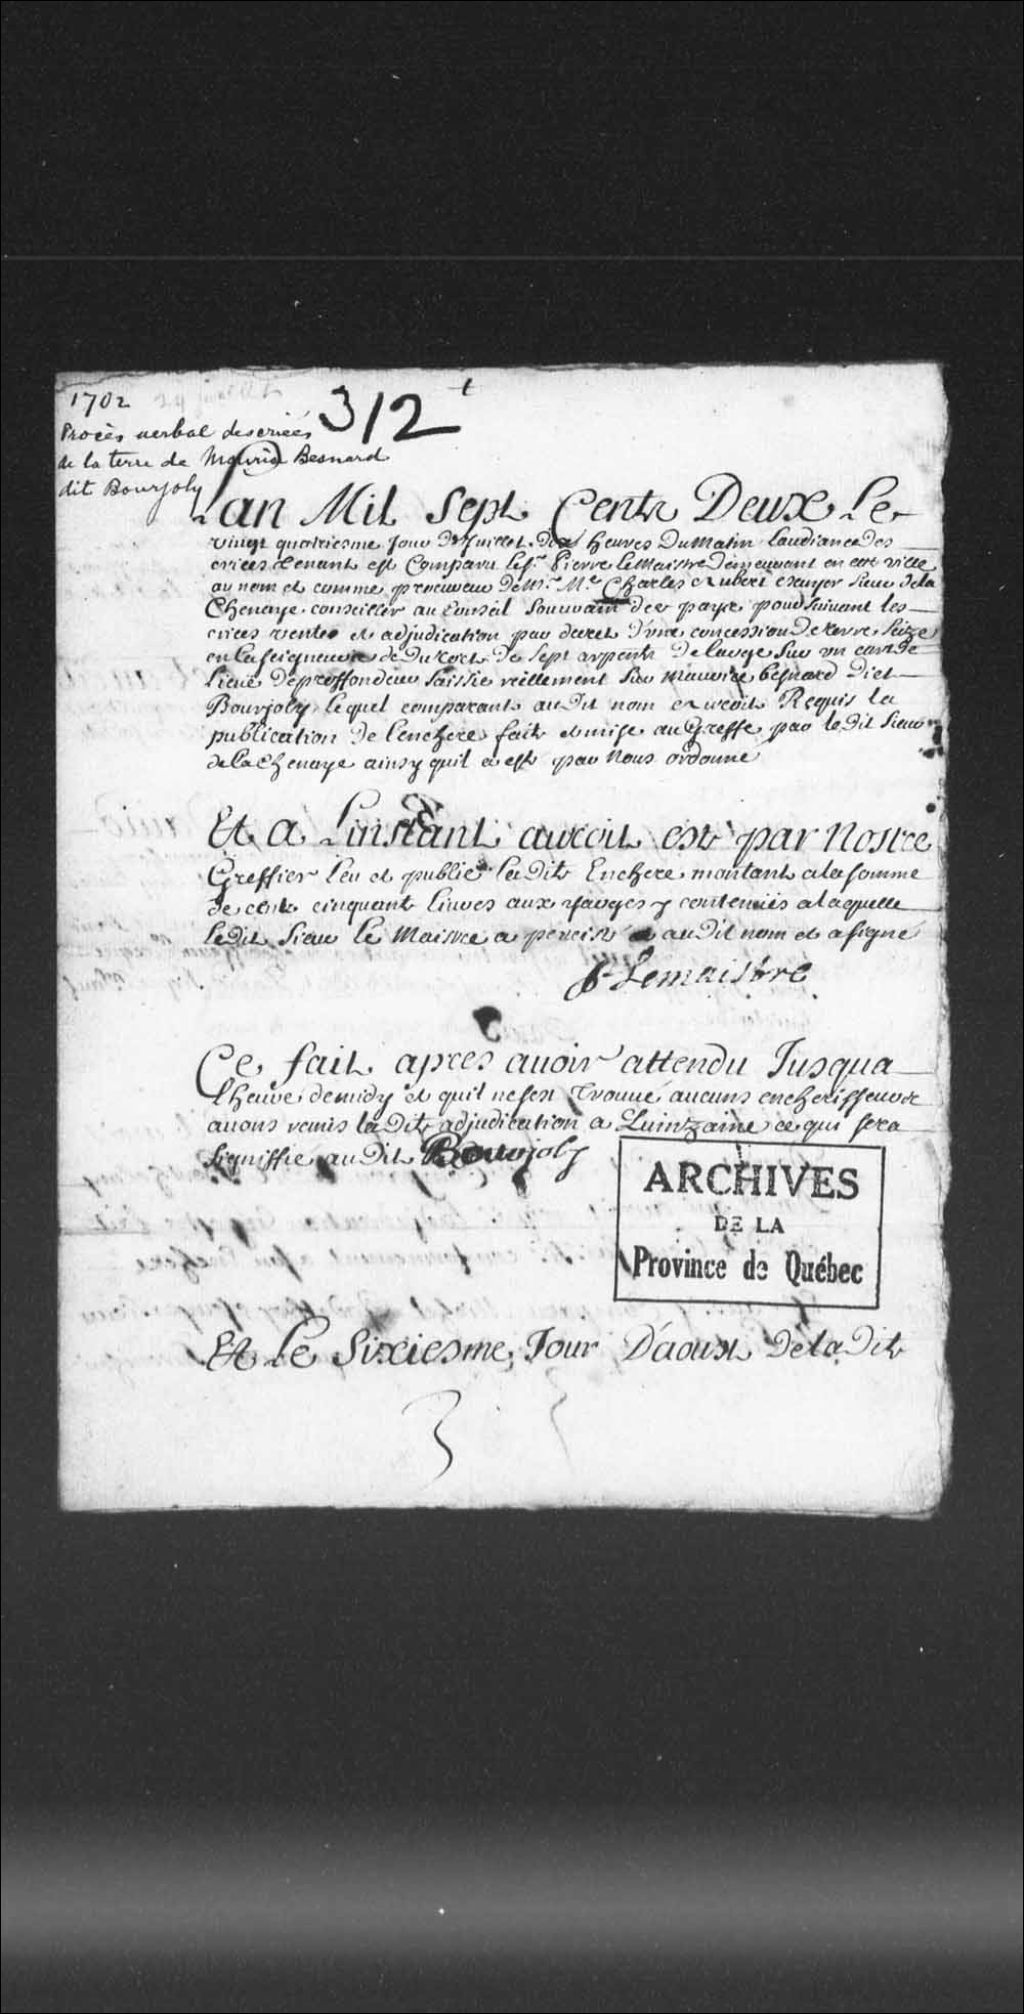 1702
312
Procès verbal des criées
de la terre de Maurice Besnard
dit Bourjoly
Lan Mil Sept Cents Deux Le
vingt quatriesme Jour De Juillet dix heures Du Matin Laudiance Des
criees tenant est Comparu le Sr. Pierre Le Maistre Demeurant en cet ville
au nom et comme procureur De Mr. Me Charles Aubert escuyer Sieur Dela
Chenaye conseiller au Conseil Souverain de ce payx poursuivant les
criees vente et adjudication par decret D'une concession De terre Size
en la seigneurie de Du tort De sept arpents De large sur un cart De
lieue De proffondeur saisie reellement sur maurice besnard Diet
Bourjoly lequel comparant au Dit nom auroit Requis la
publication De lenchere fait et mise au Greffe par le Dit Sieur
dela Chenaye ainsy quil a este par Nous ordonné
Et a Linstant auroit esté par Nostre
Greffier leu et publié la Dite Enchere montant ala somme
de cent cinquante livres aux charges y contenües a laquelle
le Dit Sieur Le Maistre a percisté au Dit nom et a signé
P Lemaistre
Ce fait apres avoir attendu Jusqua
lheure de midy et quil ne sest trouvé aucuns encherisseurs
avons remis la Dite adjudication a Quinzaine ce qui sera
signiffié au Dit Bourjoly
ARCHIVES
DE LA
Province de Québec
Et Le Sixiesme Jour D'aoust De la Dite
3